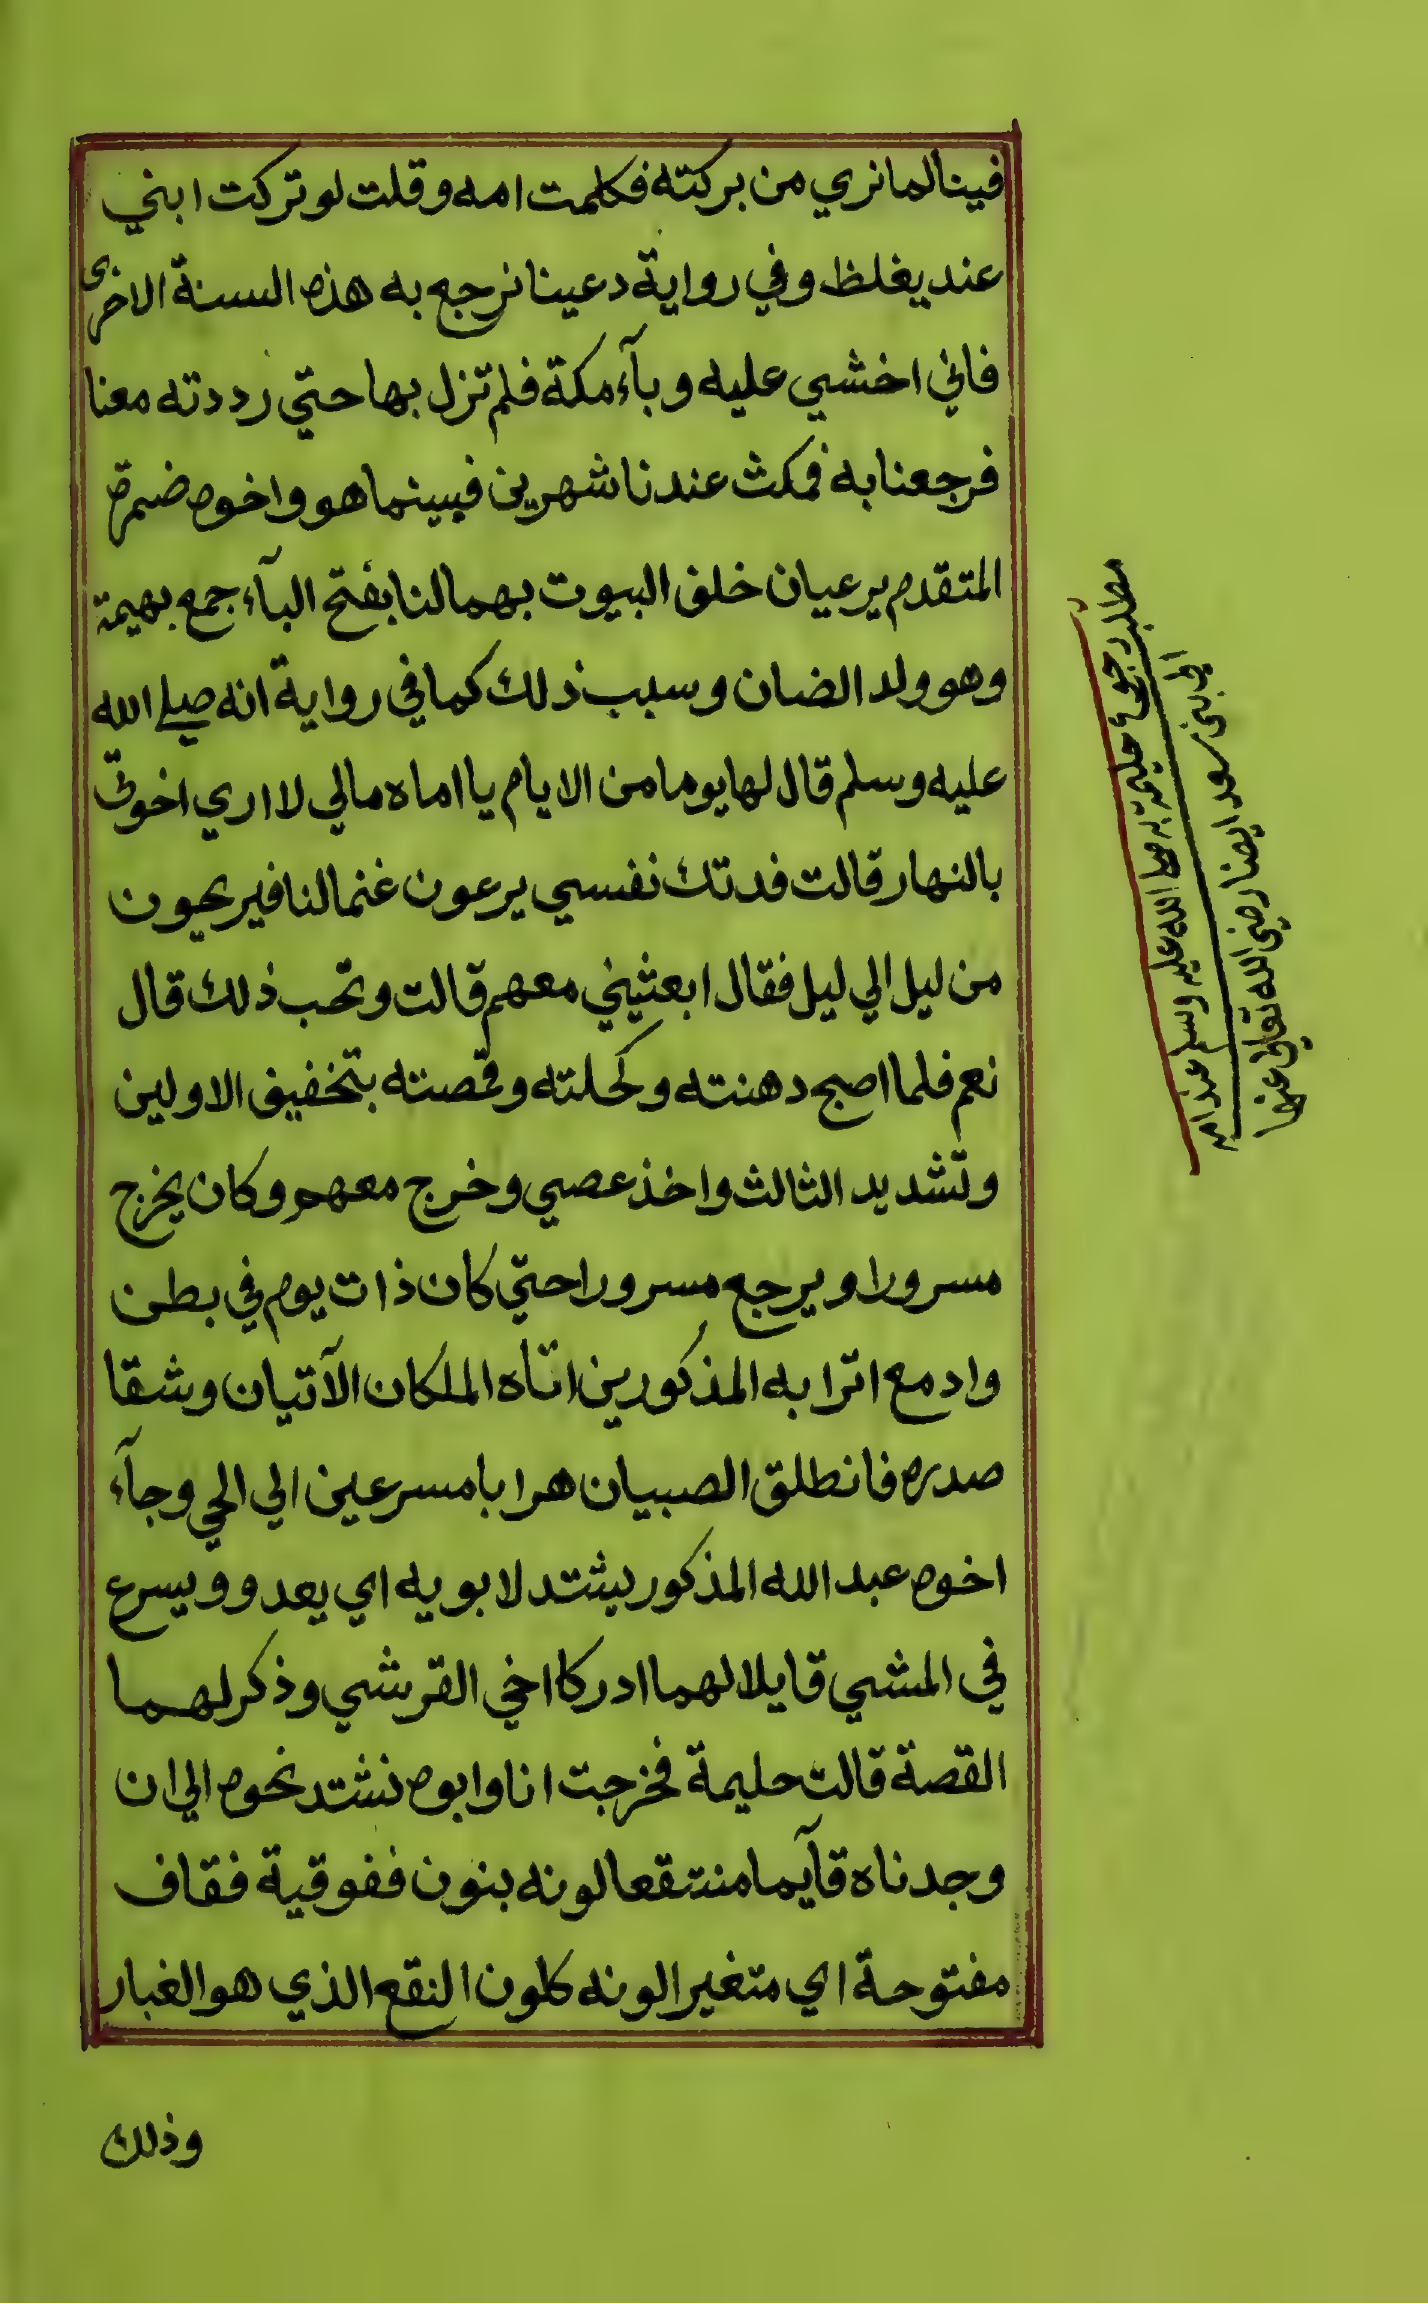 فينا لما نري من بركته فكلمت امه وقلت لو تركت ابني
عند يغلظ وفي رواية دعينا نرجع به هذه السنة الاخرى
فاني اخشي عليه وبآء مكة فلم تزل بها حتي رددته معنا
فرجعنا به فمكث عندنا شهرين فبينما هو واخوه ضمرة
المتقدم يرعيان خلف البيوت بهما لنا بفتح البآء جمع بهيمة
وهو ولد الضان وسبب ذلك كما في رواية انه صلي الله
عليه وسلم قال لها يوما من الايام يا اماه مالي لا اري اخوتي
بالنهار قالت فدتك نفسي يرعون غنما لنا فيريحون
من ليل الي ليل فقال ابعثيني معهم قالت وتحب ذلك قال
نعم فلما اصبح دهنته وكحلته وقمصته بتخفيف الاولين
وتشديد الثالث واخذ عصي وخرج معهم وكان يخرج
مسرورا ويرجع مسرورا حتي كان ذات يوم في بطن
واد مع اترابه المذكورين اتاه الملكان الآتيان وشقا
صدره فانطلق الصبيان هرابا مسرعين الي الحي وجآء
اخوه عبد الله المذكور يشتد لابويه اي يعدو ويسرع
في المشي قايلا لهما ادركا اخي القرشي وذكر لهما
القصة قالت حليمة فخرجت انا وابوه نشتد نحوه الي ان
وجدناه قآيما منتقعا لونه بنون ففوقية فقاف
مفتوحة اي متغيرا لونه كلون النقع الذي هو الغبار
وذلك
مطلب رجوع حليمة به صلى الله عليه وسلم عند امه
الى بنى سعد ايضا رضى الله تعالى عنها